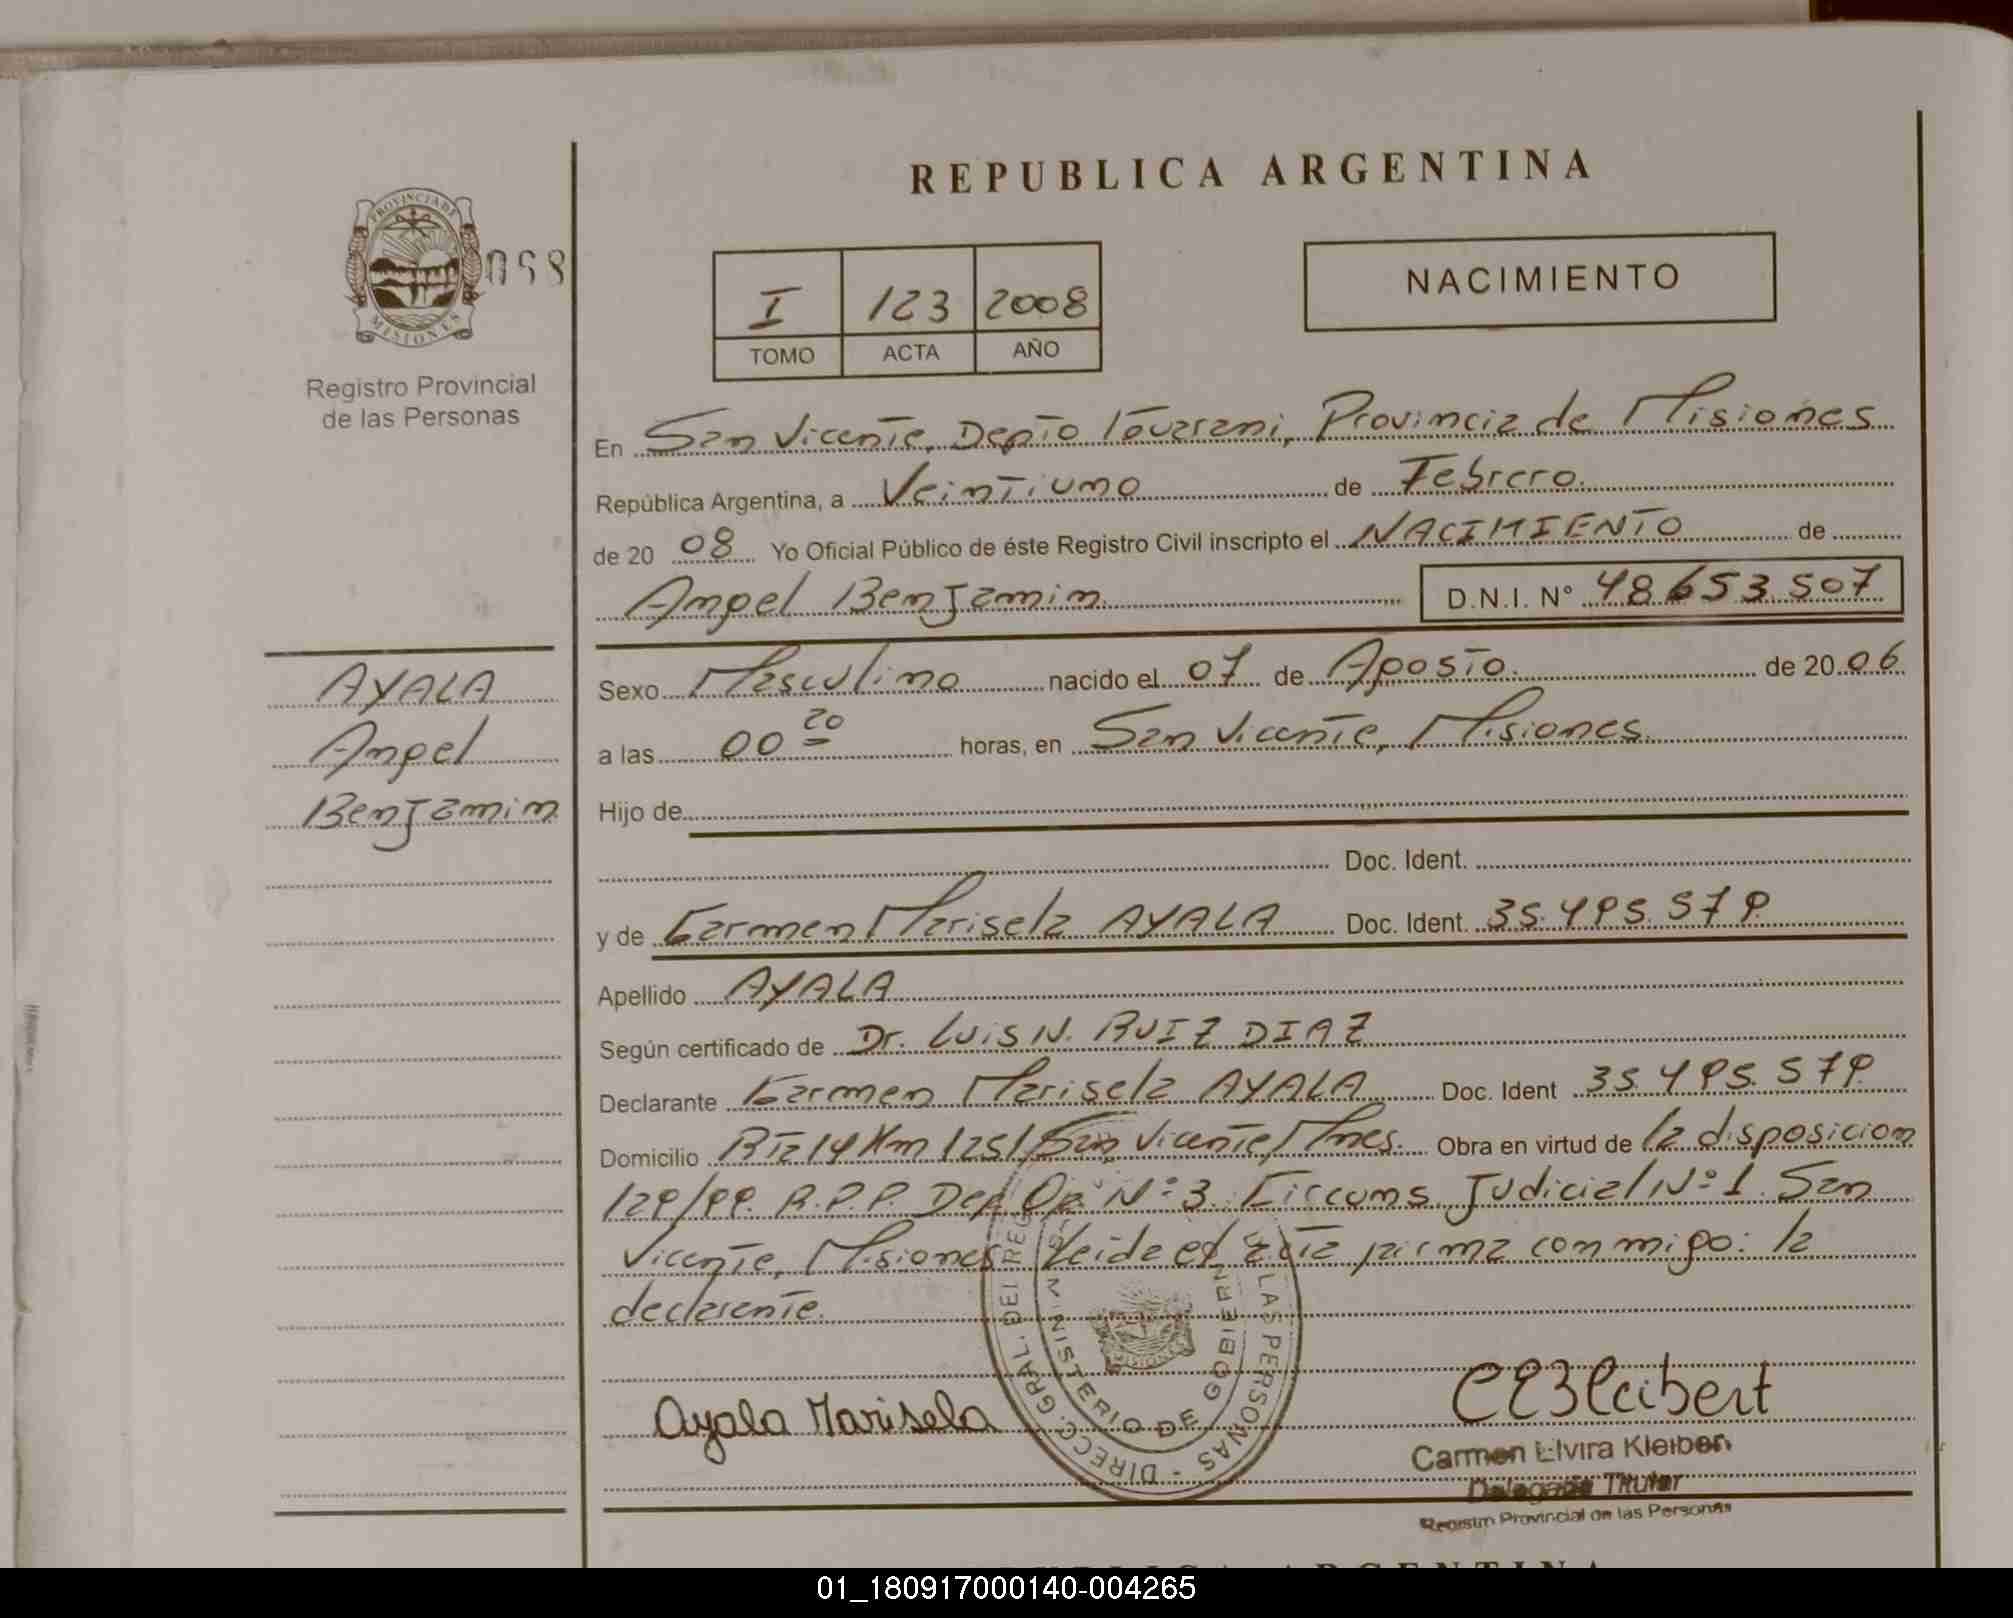 REPUBLICA ARGENTINA
PROVINCIA DE
MISIONES
058
Registro Provincial
de las Personas
I 123 2008
TOMO ACTA AÑO
NACIMIENTO
En San Vicente, Depto Guarani, Provincia de Misiones
República Argentina, a Veintiuno de Febrero.
de 20 08 Yo Oficial Público de éste Registro Civil inscripto el NACIMIENTO de
Angel Benjamin D.N.I. N° 48653507
AYALA
Angel
Benjamin
Sexo Masculino nacido el 07 de Agosto. de 20 06
a las 00 20 horas, en San Vicente, Misiones.
Hijo de
Doc. Ident.
y de Carmen Marisela AYALA Doc. Ident. 35.495.579
Apellido AYALA
Según certificado de Dr. Luis N. RUIZ DIAZ
Declarante Carmen Marisela AYALA Doc. Ident 35.495.579
Domicilio Rta 14 Km 1251 San Vicente, Mnes. Obra en virtud de la disposicion
129/99. R.P.P. Deg. Op. N° 3. Circuns. Judicial N° 1 San
Vicente, Misiones Leida el acta firma conmigo: la
declarente.
DIRECC. GRAL. DEL REG LAS PERSONAS -
MINISTERIO DE GOBIERN
MISIONES
Ayala Marisela
CEKleibert
Carmen Elvira Kleiber
Delegada Titular
Registro Provincial de las Personas
REPUBLICA ARGENTINA
01_180917000140-004265